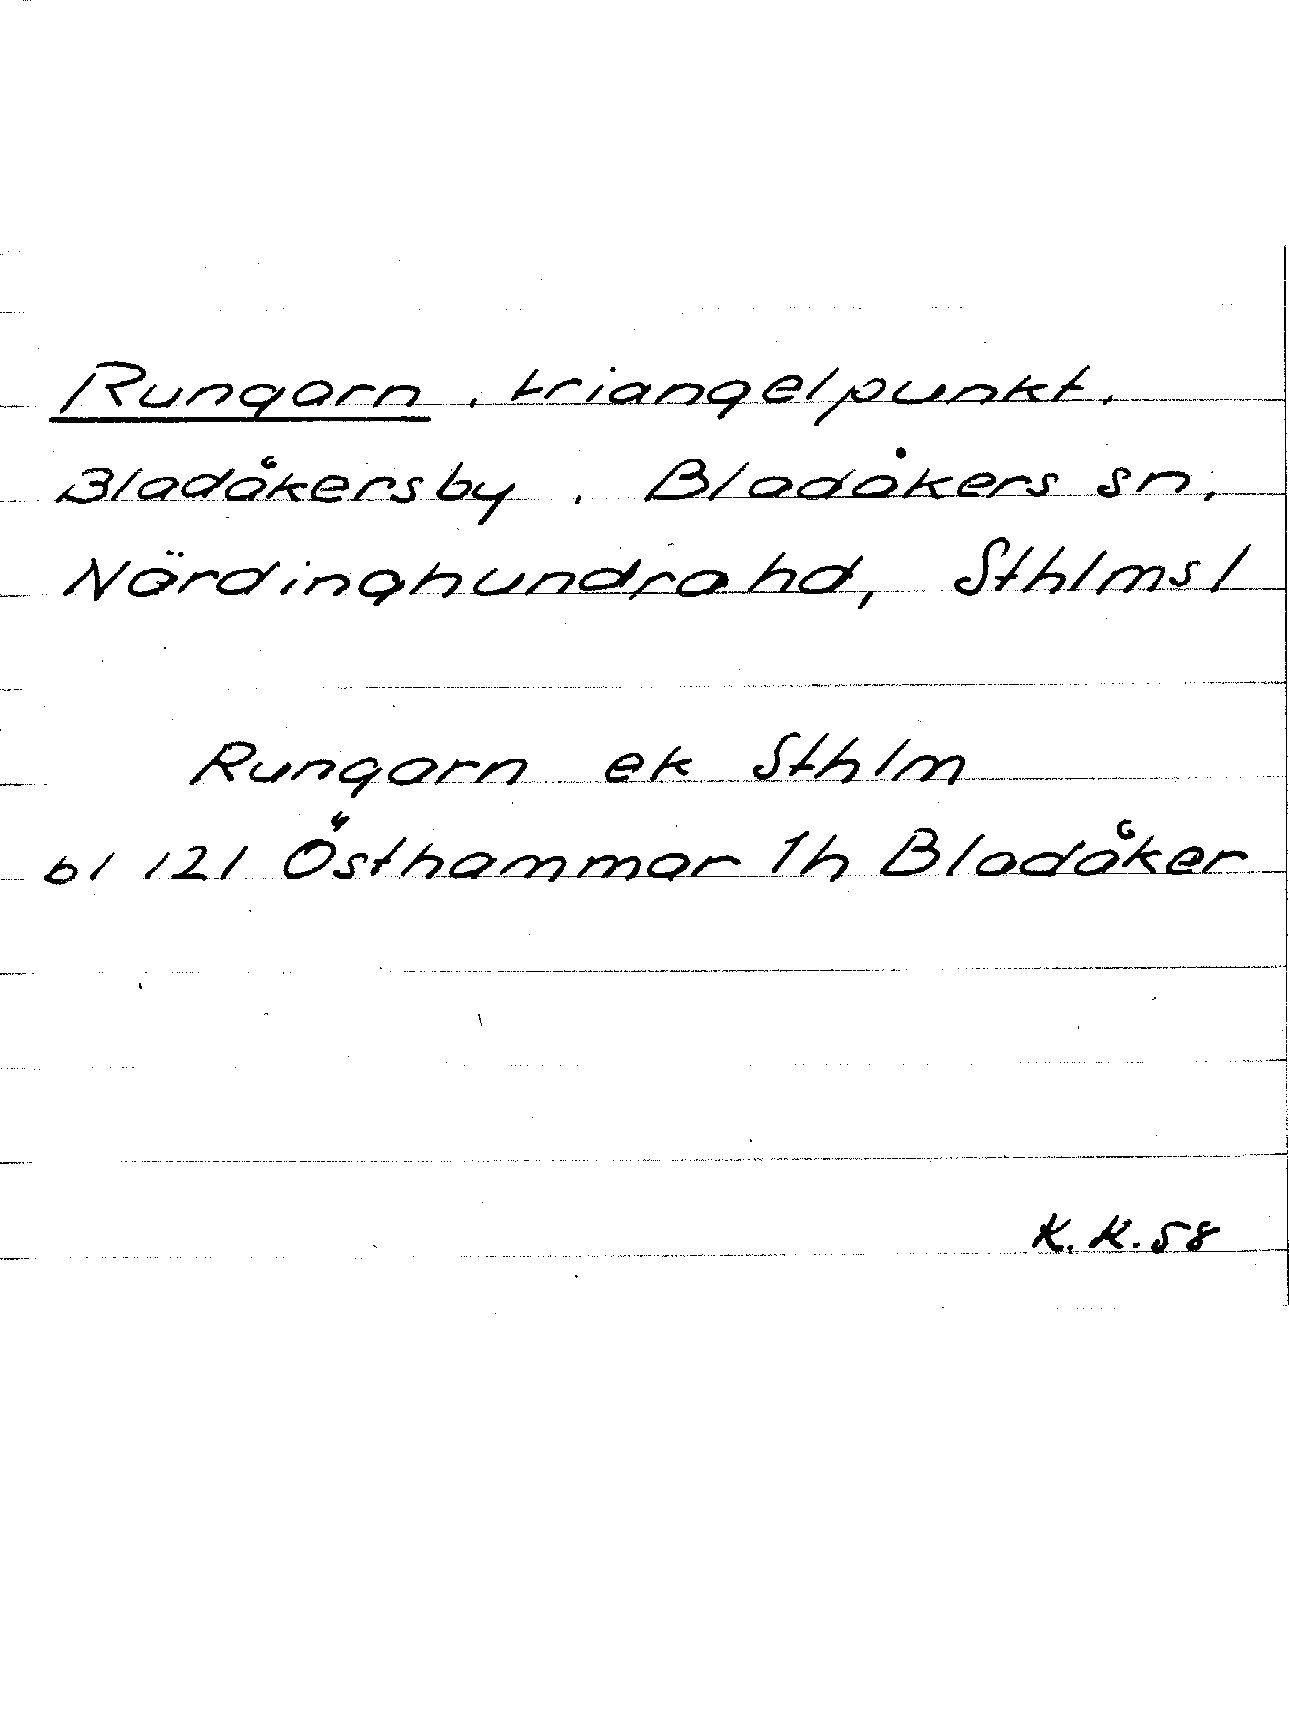 Rungarn, triangelpunkt,
Bladåkersby, Bladåkers sn,
Närdinghundra hd, Sthlmsl
Rungarn ek Sthlm
bl 121 Östhammar 1h Bladåker
K.K.58